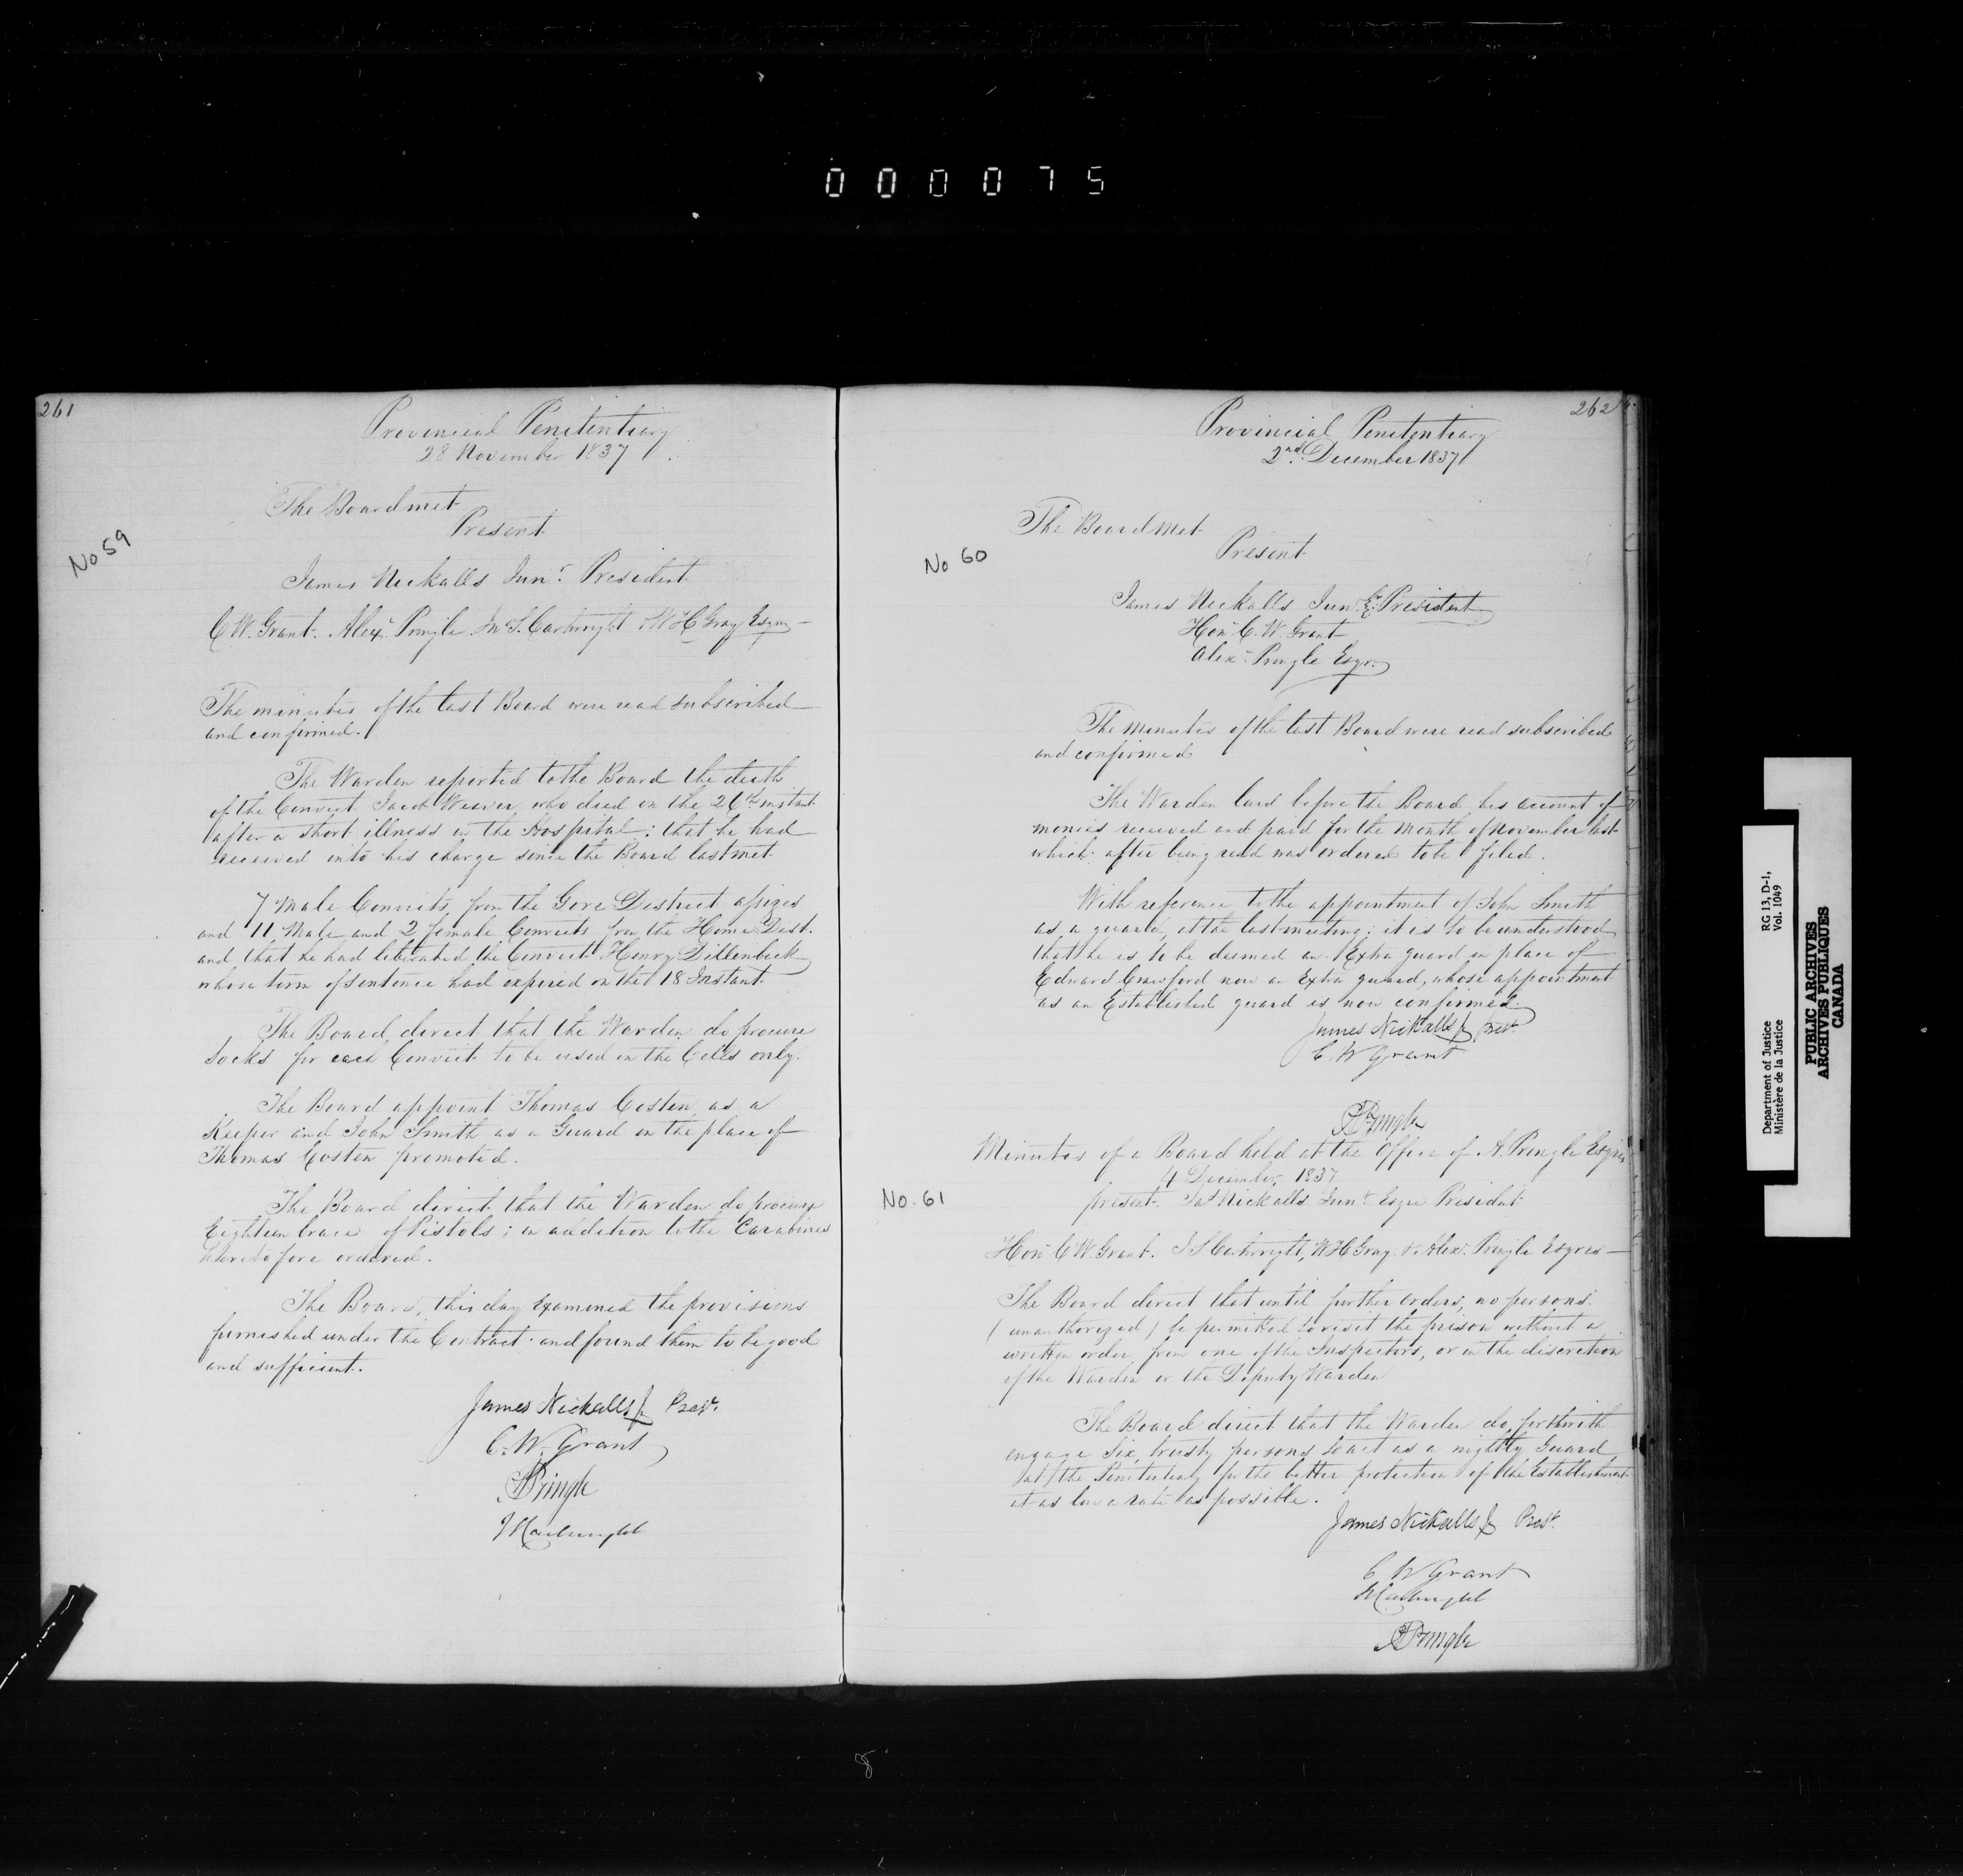 000075
261
Provincial Penitentiary
28 November 1837
The Board met
Present
No 59
James Nickalls Junr. President
C. W. Grant. Alexr. Pringle Jno S. Cartwright & W H Gray Esqrs
The minutes of the last Board were read subscribed
and confirmed.
The Warden reported to the Board the death
of the Convict Jacob Weaver who died on the 26th instant
after a short illness in the Hospital; that he had
received into his charge since the Board last met
7 Male Convicts from the Gore District assizes
and 11 Male and 2 female Convicts from the Home Dist.
and that he had liberated the Convict Henry Dillenbeck
whose term of sentence had expired on the 18 Instant
The Board direct that the Warden do procure
Socks for each Convict to be used in the Cells only.
The Board appoint Thomas Costen as a
Keeper and John Smith as a Guard in the place of
Thomas Costen promoted.
The Board direct that the Warden do procure
Eighteen brace of Pistols; in addition to the Carabines
heretofore ordered.
The Board, this day Examined the provisions
furnished under the Contract and found them to be good
and sufficient.
James Nickalls Jr Prest.
C. W. Grant
A Pringle
J S Cartwright
262
Provincial Penitentiary
2nd. December 1837
The Board met
Present
No 60
James Nickalls Junr. Esq. President
Honl. C. W. Grant
Alexr. Pringle Esqr.
The Minutes of the last Board were read subscribed
and confirmed
The Warden laid before the Board his account of
monies received and paid for the Month of November last
which after being read was ordered to be filed.
With reference to the appointment of John Smith
as a guard, at the last meeting; it is to be understood
that he is to be deemed an Extra guard in place of
Edward Crawford now an Extra guard, whose appointment
as an Established guard is now confirmed.
James Nickalls Jr Prest.
C. W Grant
A Pringle
Minutes of a Board held at the Office of A. Pringle Esqre
4 December, 1837
No. 61
present. Jas Nickalls Junr. Esqre President
Honl C W. Grant. J S Cartwright, W H Gray & Alexr. Pringle Esqres
The Board direct that until further orders, no persons
(unauthorized) be permitted to visit the prison without a
written order from one of the Inspectors, or in the discretion
of the Warden or the Deputy Warden
The Board direct that the Warden do, forthwith
engage Six, trusty persons to act as a nightly Guard
at the Penitentiary for the better protection of the Establishment
at as low a rate as possible.
James Nickalls Jr Prest.
C W Grant
J S Cartwright
A Pringle
8
Department of Justice
Ministère de la Justice
RG 13, D-1,
Vol. 1049
PUBLIC ARCHIVES
ARCHIVES PUBLIQUES
CANADA